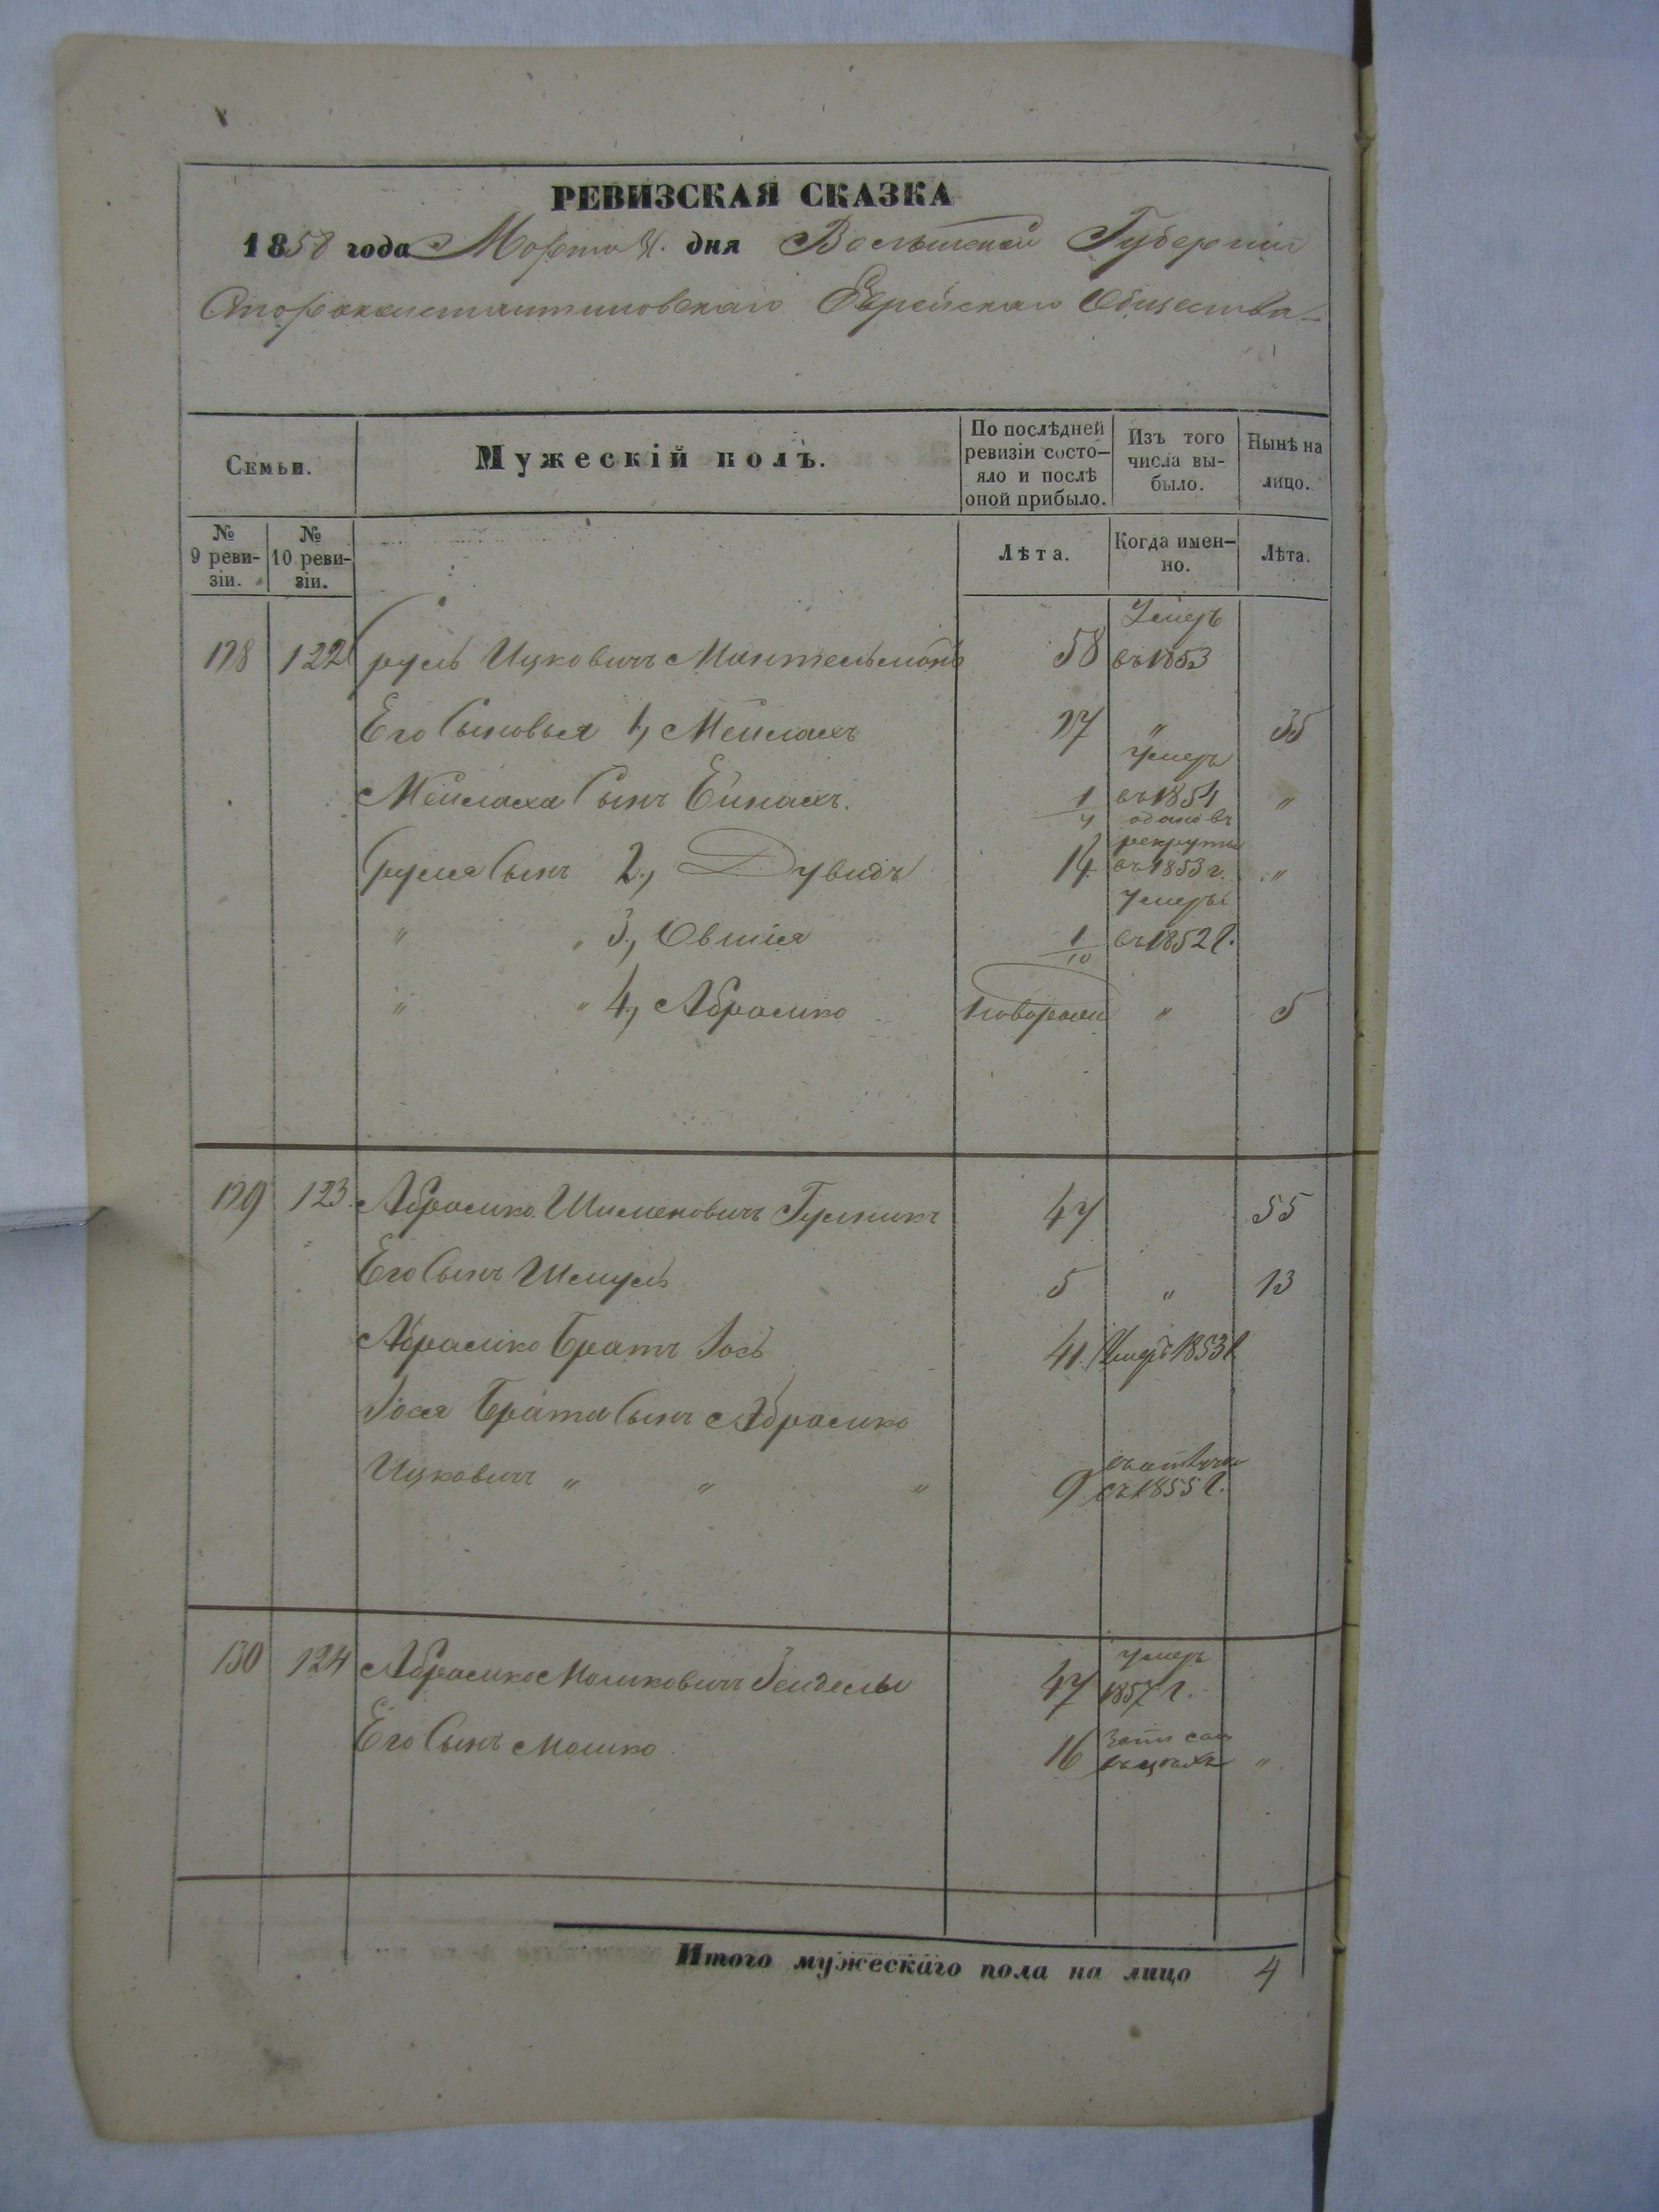 РЕВИЗСКАЯ СКАЗКА
1858 года Марта дня Волынской Губернии
Староконстантиновскаго Еврейскаго Общества
Семьи.
Мужескій полъ.
По послѣдней ревизіи состо-
яло и послѣ
оной прибыло.
Изъ того
числа вы-
было.
Нынѣ на
лицо.
№
9 реви-
зіи.
№
10 реви-
зіи.
Лѣта.
Когда имен-
но.
Лѣта.
128 122 Сруль Ицковичъ Мантельманъ 58 Умеръ въ 1853
Его Сыновья 1, Мейлахъ 27 " 35
Мейлаха Сынъ 1/4 Умеръ въ 1854 "
Сруля Сынъ 2, Дувидъ 14 отданъ въ рекруты въ 1853 г. "
" " 3, Овшія 1/10 Умеръ въ 1852 г.
" " 4, Абрамко Новорожд " 5
129 123 Абрамко Шимоновичъ 47 " 55
Его Сынъ Шмуль 5 " 13
Абрамко Братъ Іось 41 Умеръ 1853 г
Іося Брата Сынъ Абрамко
Ицковичъ " " " 9 съ 1855 г.
130 124 Абрамко Мошковичъ 47 умеръ 1857 г.
Его Сынъ Мошко 16 "
Итого мужескаго пола на лицо 4